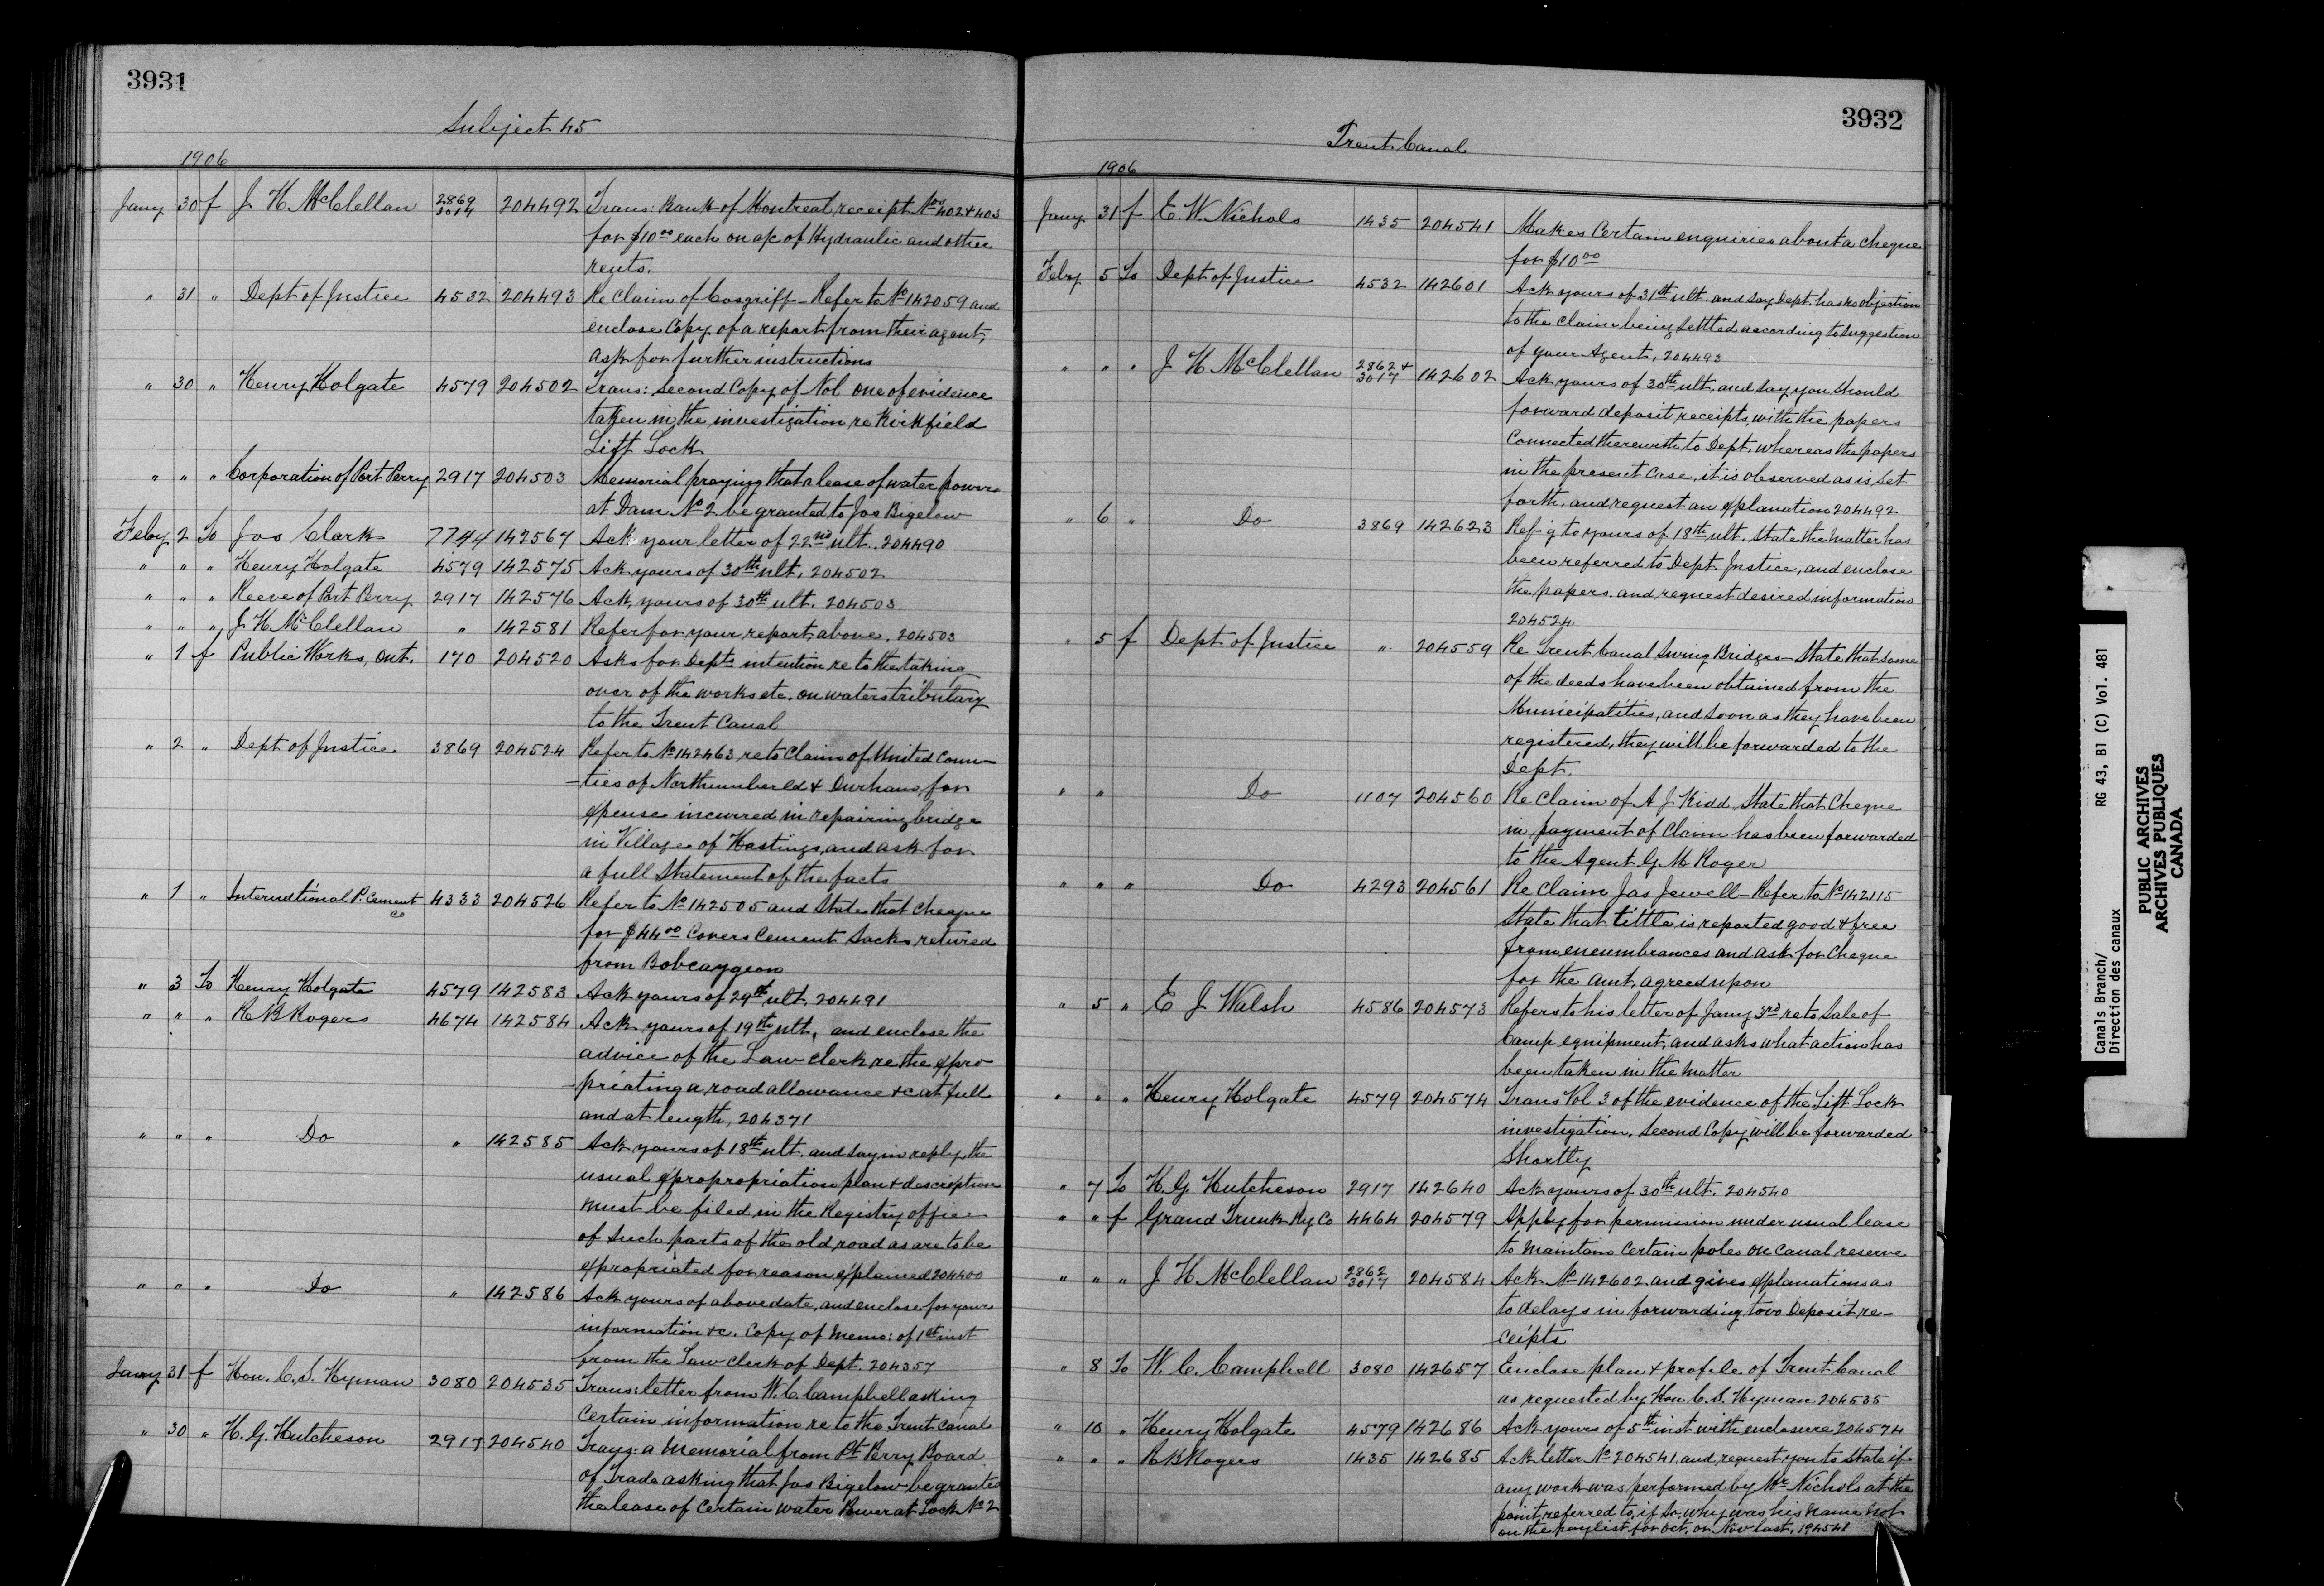 3931
Subject 45
1906
Jany 30 f J H McClellan 2869 3014 204492 Trans: Bank of Montreal receipt Nos 402 & 403
for $10.00 each on a/c of Hydraulic and other
rents.
" 31 " Dept of Justice 4532 204493 Re Claim of Cosgriff - Refer to No 142059 and
enclose Copy of a report from their agent,
ask for further instructions
" 30 " Henry Holgate 4579 204502 Trans: Second Copy of Vol one of evidence
taken in the investigation re Kirkfield
Lift Lock
" " " Corporation of Port Perry 2917 204503 Memorial praying that a lease of water power
at Dam No 2 be granted to Jos Bigelow
Feby 2 To Jos Clark 7744 142567 Ack your letter of 22nd ult. 204490
" " " Henry Holgate 4579 142575 Ack yours of 30th ult. 204502
" " " Reeve of Port Perry 2917 142576 Ack yours of 30th ult. 204503
" " " J H McClellan " 142581 Refer for your report above. 204503
" 1 f Public Works, Ont. 170 204520 Asks for Depts intention re to the taking
over of the works etc. on waters tributary
to the Trent Canal
" 2 " Dept of Justice 3869 204524 Refer to No 142463 re to Claim of United Coun-
-ties of Northumberld & Durham, for
expense incurred in repairing bridge
in Village of Hastings, and ask for
a full Statement of the facts
" 1 " International P. Cement Co 4333 204526 Refer to No 142505 and States that Cheque
for $44.00 Covers Cement Sacks retured
from Bobcaygeon
" 3 To Henry Holgate 4579 142583 Ack yours of 29th ult. 204491
" " " R B Rogers 4674 142584 Ack yours of 19th ult, and enclose the
advice of the Law Clerk, re the expro-
-priating a road allowance &c at full
and at length, 204371
" " " Do " 142585 Ack yours of 18th ult. and say in reply, the
usual expropropriation plan & description
must be filed in the Registry office
of such parts of the old road as are to be
expropriated for reason explained 204400
" " " Do " 142586 Ack yours of above date, and enclose for your
information &c. Copy of Memo: of 1st inst
from the Law Clerk of Dept. 204357
Jany 31 f Hon. C. S. Hyman 3080 204535 Trans: letter from W. C. Campbell asking
Certain information re to the Trent Canal
" 30 " H. G. Hutcheson 2917 204540 Trans: a Memorial from Pt Perry Board
of Trade asking that Jos Bigelow be granted
the lease of Certain water Power at Lock No 2
3932
Trent Canal
1906
Jany 31 f E. W. Nichols 1435 204541 Makes Certain enquiries about a Cheque
for $10.00
Feby 5 To Dept of Justice 4532 142601 Ack yours of 31st ult. and say Dept. has no objection
to the Claim being Settled according to Suggestion
of your Agent, 204493
" " " J H McClellan 2862 & 3017 142602 Ack yours of 30th ult. and say you should
forward deposit receipts, with the papers
Connected therewith to Dept, whereas the papers
in the present Case, it is observed as is set
forth, and request an explanation 204492
" 6 " Do 3869 142623 Ref-g to yours of 18th ult. State the matter has
been referred to Dept. Justice, and enclose
the papers. and request desired information
204524.
" 5 f Dept of Justice " 204559 Re Trent Canal Swing Bridges - State that some
of the deeds have been obtained from the
Municipalities, and soon as they have been
registered, they will be forwarded to the
Dept.
" " Do 1107 204560 Re Claim of A J Kidd State that Cheque
in payment of Claim has been forwarded
to the Agent G. M Roger
" " " Do 4293 204561 Re Claim Jas Jewell - Refer to No 142115
State that tittle is reported good & free
from encumbrances and ask for Cheque
for the amt. agreed upon
" 5 " E J Walsh 4586 204573 Refers to his letter of Jany 3rd, re to Sale of
Camp equipment, and asks what action has
been taken in the Matter
" " " Henry Holgate 4579 204574 Trans Vol 3 of the evidence of the Lift Lock
investigation. Second Copy will be forwarded
Shortly
" 7 To H. G. Hutcheson 2917 142640 Ack yours of 30th ult. 204540
" " f Grand Trunk Ry Co 4464 204579 Apply for permission under usual lease
to maintain Certain poles on Canal reserve
" " " J H McClellan 2862 3017 204584 Ack No 142602 and gives explanation as
to delays in forwarding two Deposit re-
ceipts
" 8 To W. C. Campbell 3080 142657 Enclose plan & profile of Trent Canal
as requested by Hon. C. S. Hyman 204535
" 10 " Henry Holgate 4579 142686 Ack yours of 5th inst with enclosure 204574
" " " R B Rogers 1435 142685 Ack letter No 204541. and request you to State if
any work was performed by Mr Nichols at the
point referred to, if so why was his name not
on the paylist for Oct, or Nov last, 194541
Canals Branch/ RG 43, B1 (C) Vol. 481
Direction des canaux
PUBLIC ARCHIVES
ARCHIVES PUBLIQUES
CANADA